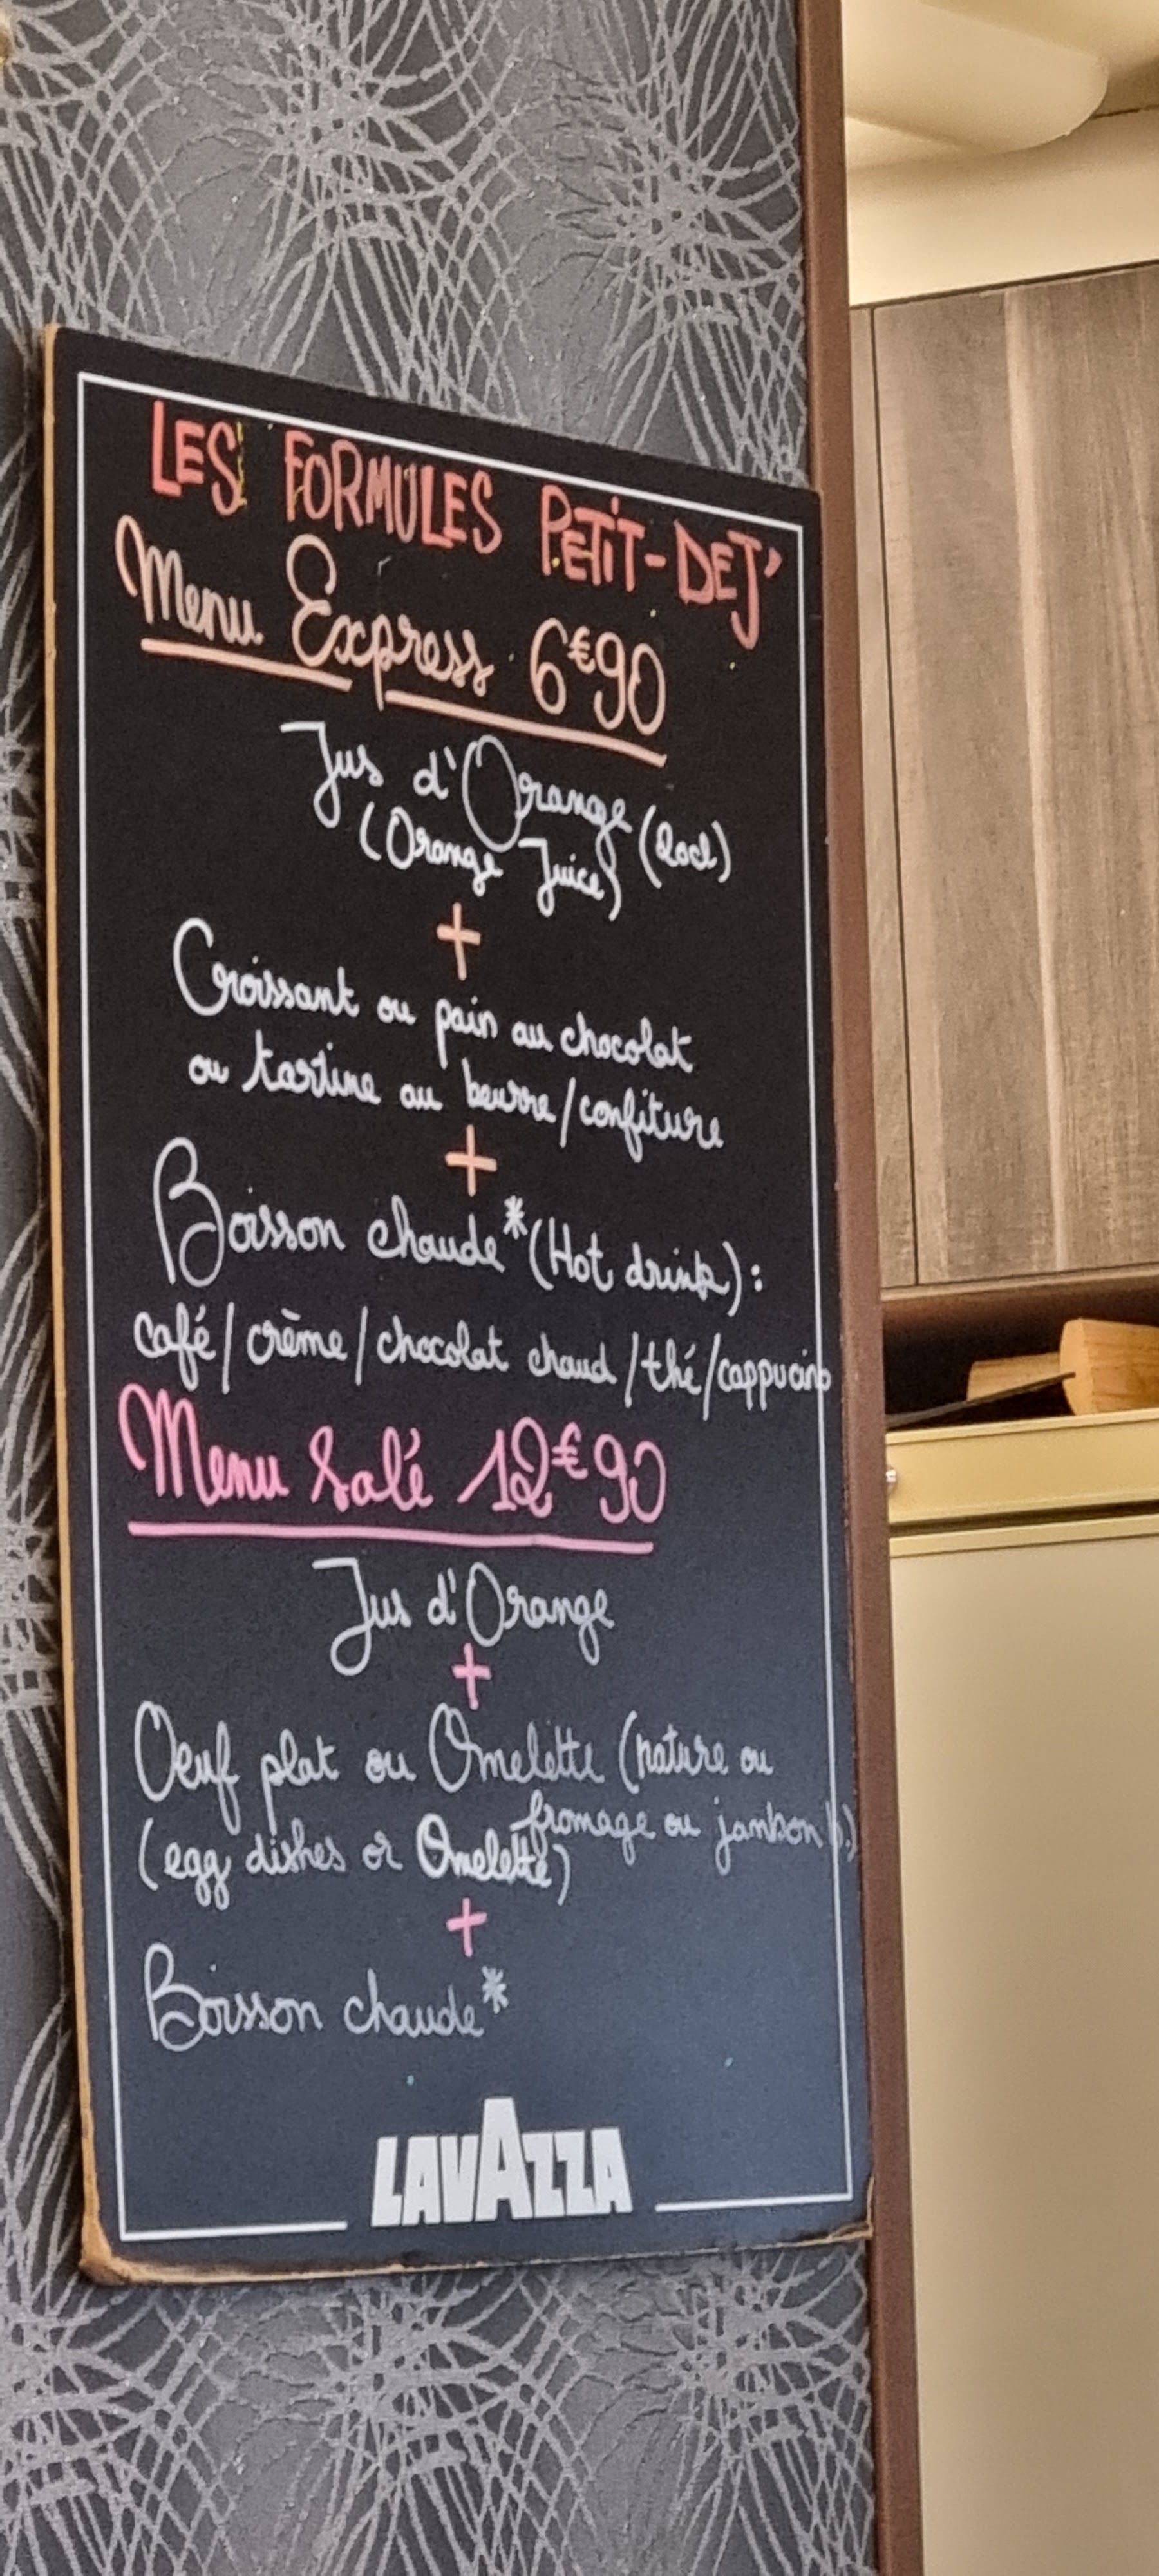 LES FORMULES PETIT-DEJ'
Menu Express 6€90
Jus d'Orange (20cl)
(Orange Juice)
+
Croissant ou pain au chocolat
ou tartine au beurre/confiture
+
Boisson chaude* (Hot drink):
café/crème/chocolat chaud/thé/cappucino
Menu Salé 12€90
Jus d'Orange
+
Oeuf plat ou Omelette (nature ou
fromage ou jambon b.)
(egg dishes or Omelette)
+
Boisson chaude*
LAVAZZA